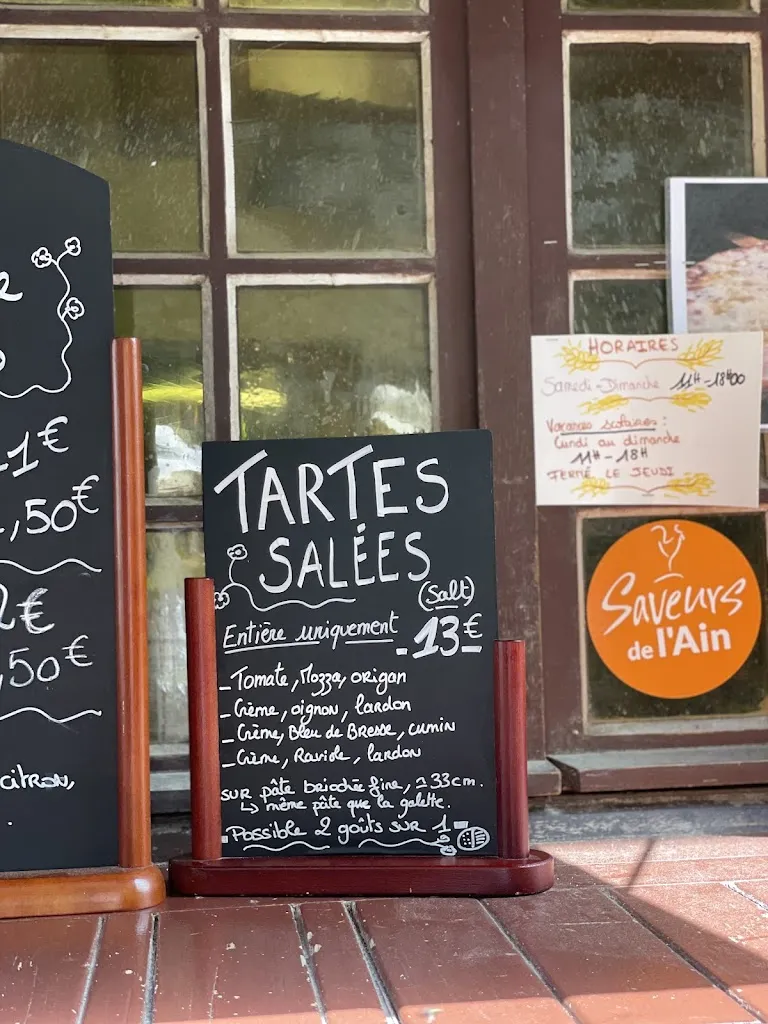 1€
,50€
2€
,50€
citron,
TARTES
SALÉES
(salt)
Entière uniquement -13€-
- Tomate, Mozza, origan
- Crème, oignon, lardon
- Crème, Bleu de Bresse, cumin
- Crème, Raviole, lardon
sur pâte briochée fine, ≃ 33cm.
↳ même pâte que la galette.
- Possible 2 goûts sur 1 -
HORAIRES
Samedi-Dimanche 11H-18H00
Vacances scolaires :
Lundi au dimanche
11H-18H
FERMÉ LE JEUDI
Saveurs
de l'Ain